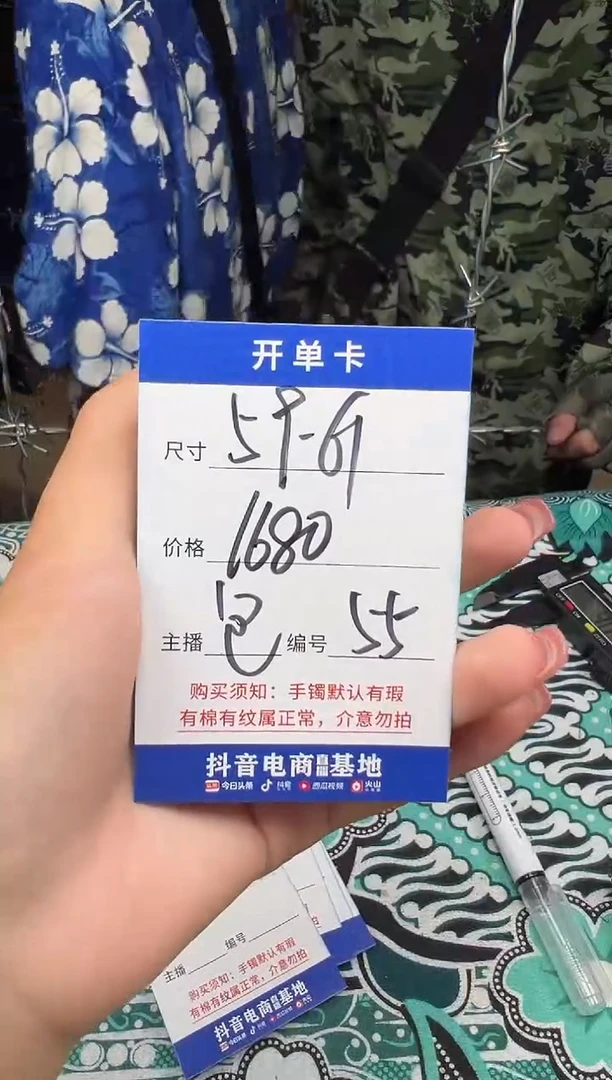 开单卡
尺寸 59-61
价格 1680
主播 包 编号 55
购买须知：手镯默认有瑕
有棉有纹属正常，介意勿拍
抖音电商直播基地
今日头条 抖音 西瓜视频 火山
主播 编号
购买须知：手镯默认有瑕
有棉有纹属正常，介意勿拍
抖音电商直播基地